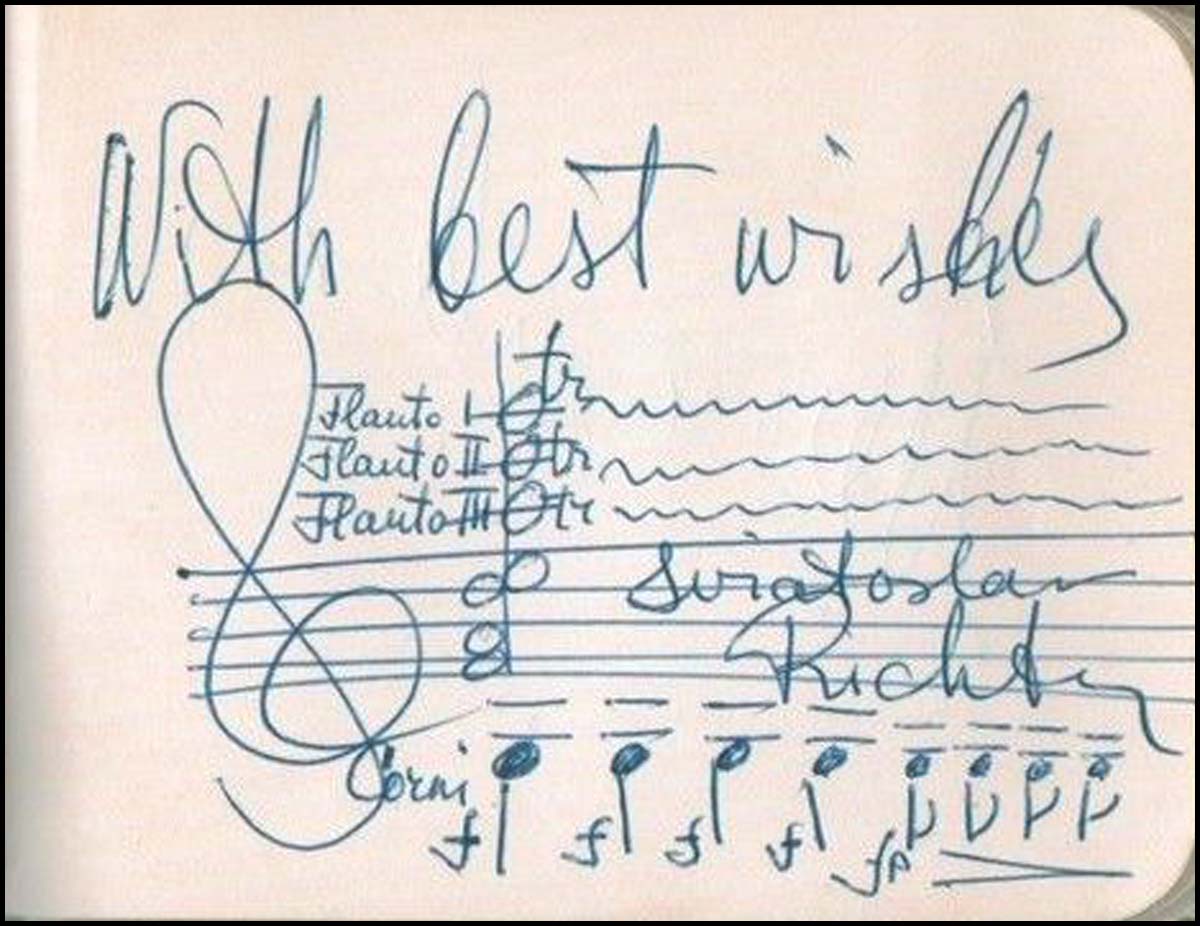 With best wishes
tr
Flauto I
Flauto II tr
Flauto III tr
Sviatoslav
Richter
Corni
f f f f fp